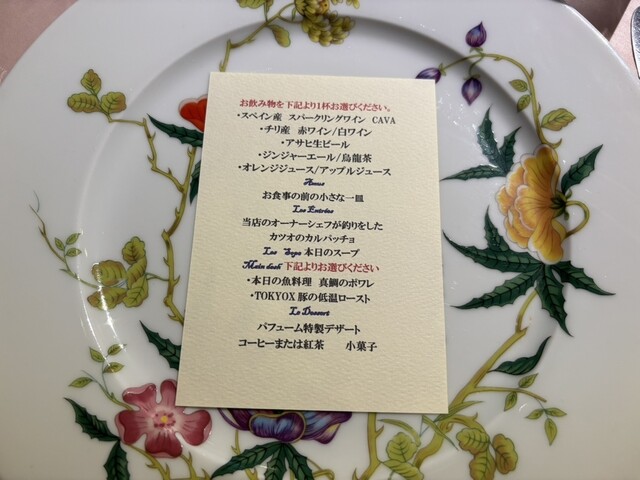 お飲み物を下記より1杯お選びください。
・スペイン産 スパークリングワイン CAVA
・チリ産 赤ワイン/白ワイン
・アサヒ生ビール
・ジンジャーエール/烏龍茶
・オレンジジュース/アップルジュース
Amuse
お食事の前の小さな一皿
Les Entrées
当店のオーナーシェフが釣りをした
カツオのカルパッチョ
Les Soga 本日のスープ
Main dash 下記よりお選びください
・本日の魚料理 真鯛のポワレ
・TOKYOX 豚の低温ロースト
Le Dessert
パフューム特製デザート
コーヒーまたは紅茶 小菓子